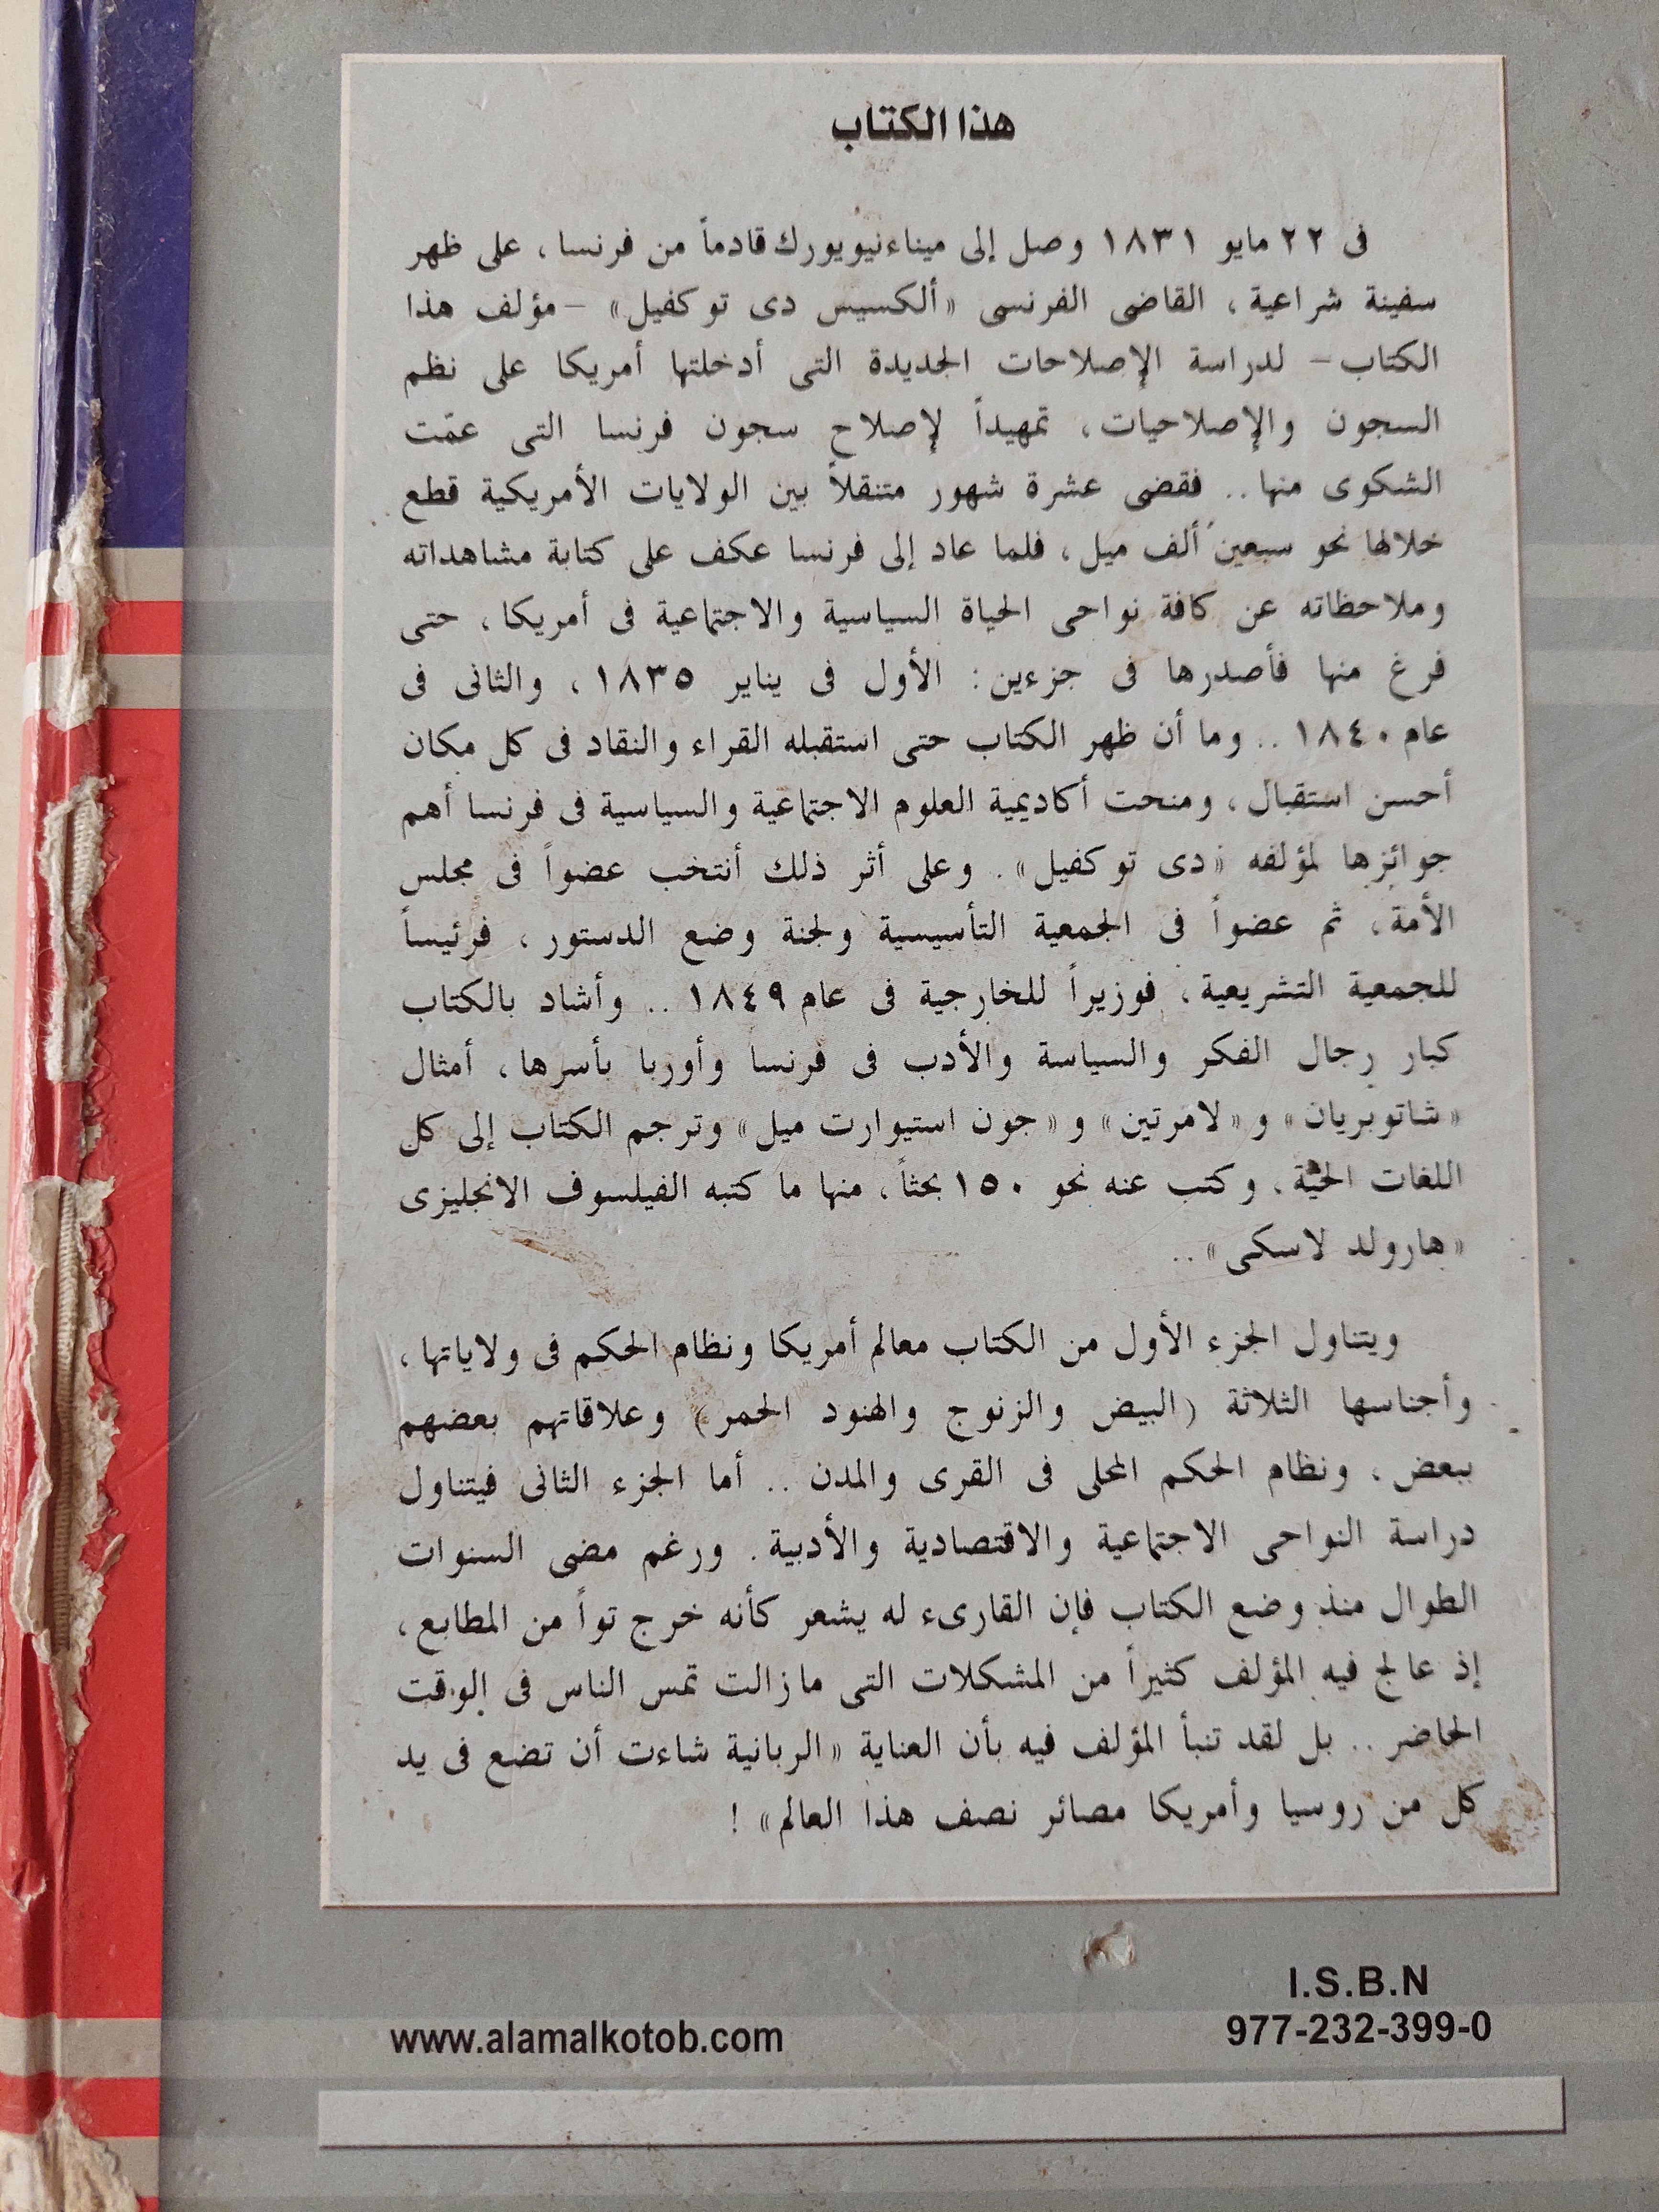 هذا الكتاب
فى ٢٢ مايو ١٨٣١ وصل إلى ميناء نيويورك قادماً من فرنسا، على ظهر
سفينة شراعية، القاضى الفرنسى «ألكسيس دى توكفيل» – مؤلف هذا
الكتاب – لدراسة الإصلاحات الجديدة التى أدخلتها أمريكا على نظم
السجون والإصلاحيات، تمهيداً لإصلاح سجون فرنسا التى عمّت
الشكوى منها .. فقضى عشرة شهور متنقلاً بين الولايات الأمريكية قطع
خلالها نحو سبعين ألف ميل، فلما عاد إلى فرنسا عكف على كتابة مشاهداته
وملاحظاته عن كافة نواحى الحياة السياسية والاجتماعية فى أمريكا، حتى
فرغ منها فأصدرها فى جزءين: الأول فى يناير ١٨٣٥، والثانى فى
عام ١٨٤٠ .. وما أن ظهر الكتاب حتى استقبله القراء والنقاد فى كل مكان
أحسن استقبال، ومنحت أكاديمية العلوم الاجتماعية والسياسية فى فرنسا أهم
جوائزها لمؤلفه «دى توكفيل». وعلى أثر ذلك أنتخب عضواً فى مجلس
الأمة، ثم عضواً فى الجمعية التأسيسية ولجنة وضع الدستور، فرئيساً
للجمعية التشريعية، فوزيراً للخارجية فى عام ١٨٤٩ .. وأشاد بالكتاب
كبار رجال الفكر والسياسة والأدب فى فرنسا وأوربا بأسرها، أمثال
«شاتوبريان» و«لامرتين» و«جون استيوارت ميل» وترجم الكتاب إلى كل
اللغات الحيّة، وكتب عنه نحو ١٥٠ بحثاً، منها ما كتبه الفيلسوف الانجليزى
«هارولد لاسكى» ..
ويتناول الجزء الأول من الكتاب معالم أمريكا ونظام الحكم فى ولاياتها،
وأجناسها الثلاثة (البيض والزنوج والهنود الحمر) وعلاقاتهم بعضهم
ببعض، ونظام الحكم المحلى فى القرى والمدن .. أما الجزء الثانى فيتناول
دراسة النواحى الاجتماعية والاقتصادية والأدبية. ورغم مضى السنوات
الطوال منذ وضع الكتاب فإن القارىء له يشعر كأنه خرج تواً من المطابع،
إذ عالج فيه المؤلف كثيراً من المشكلات التى مازالت تمس الناس فى الوقت
الحاضر .. بل لقد تنبأ المؤلف فيه بأن العناية «الربانية شاءت أن تضع فى يد
كل من روسيا وأمريكا مصائر نصف هذا العالم» !
I.S.B.N
977-232-399-0
www.alamalkotob.com